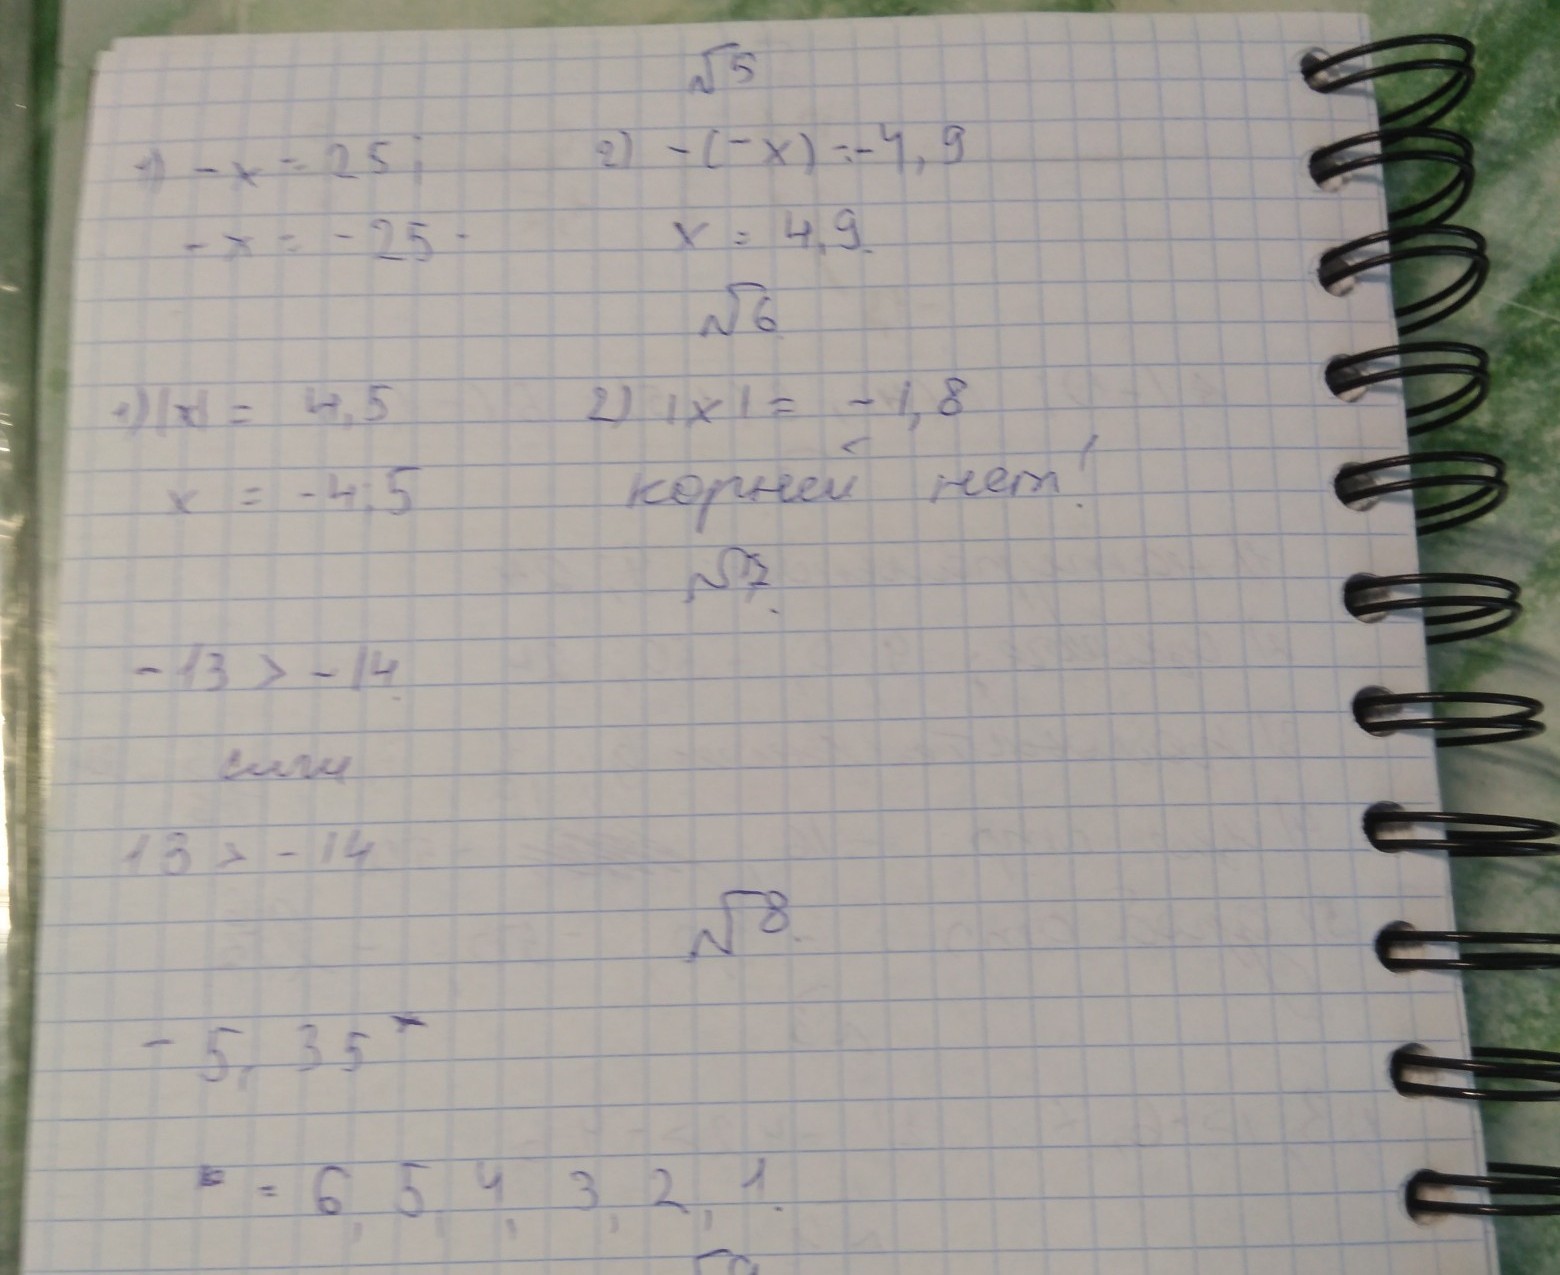 №5
1) -x = 25; 2) -(-x) = -4,9
-x = -25. x = 4,9.
№6
1) |x| = 4,5 2) |x| = -1,8
x = -4,5 корней нет!
№7.
-13 > -14.
или
13 > -14
№8.
- 5, 35*
* = 6, 5, 4, 3, 2, 1.